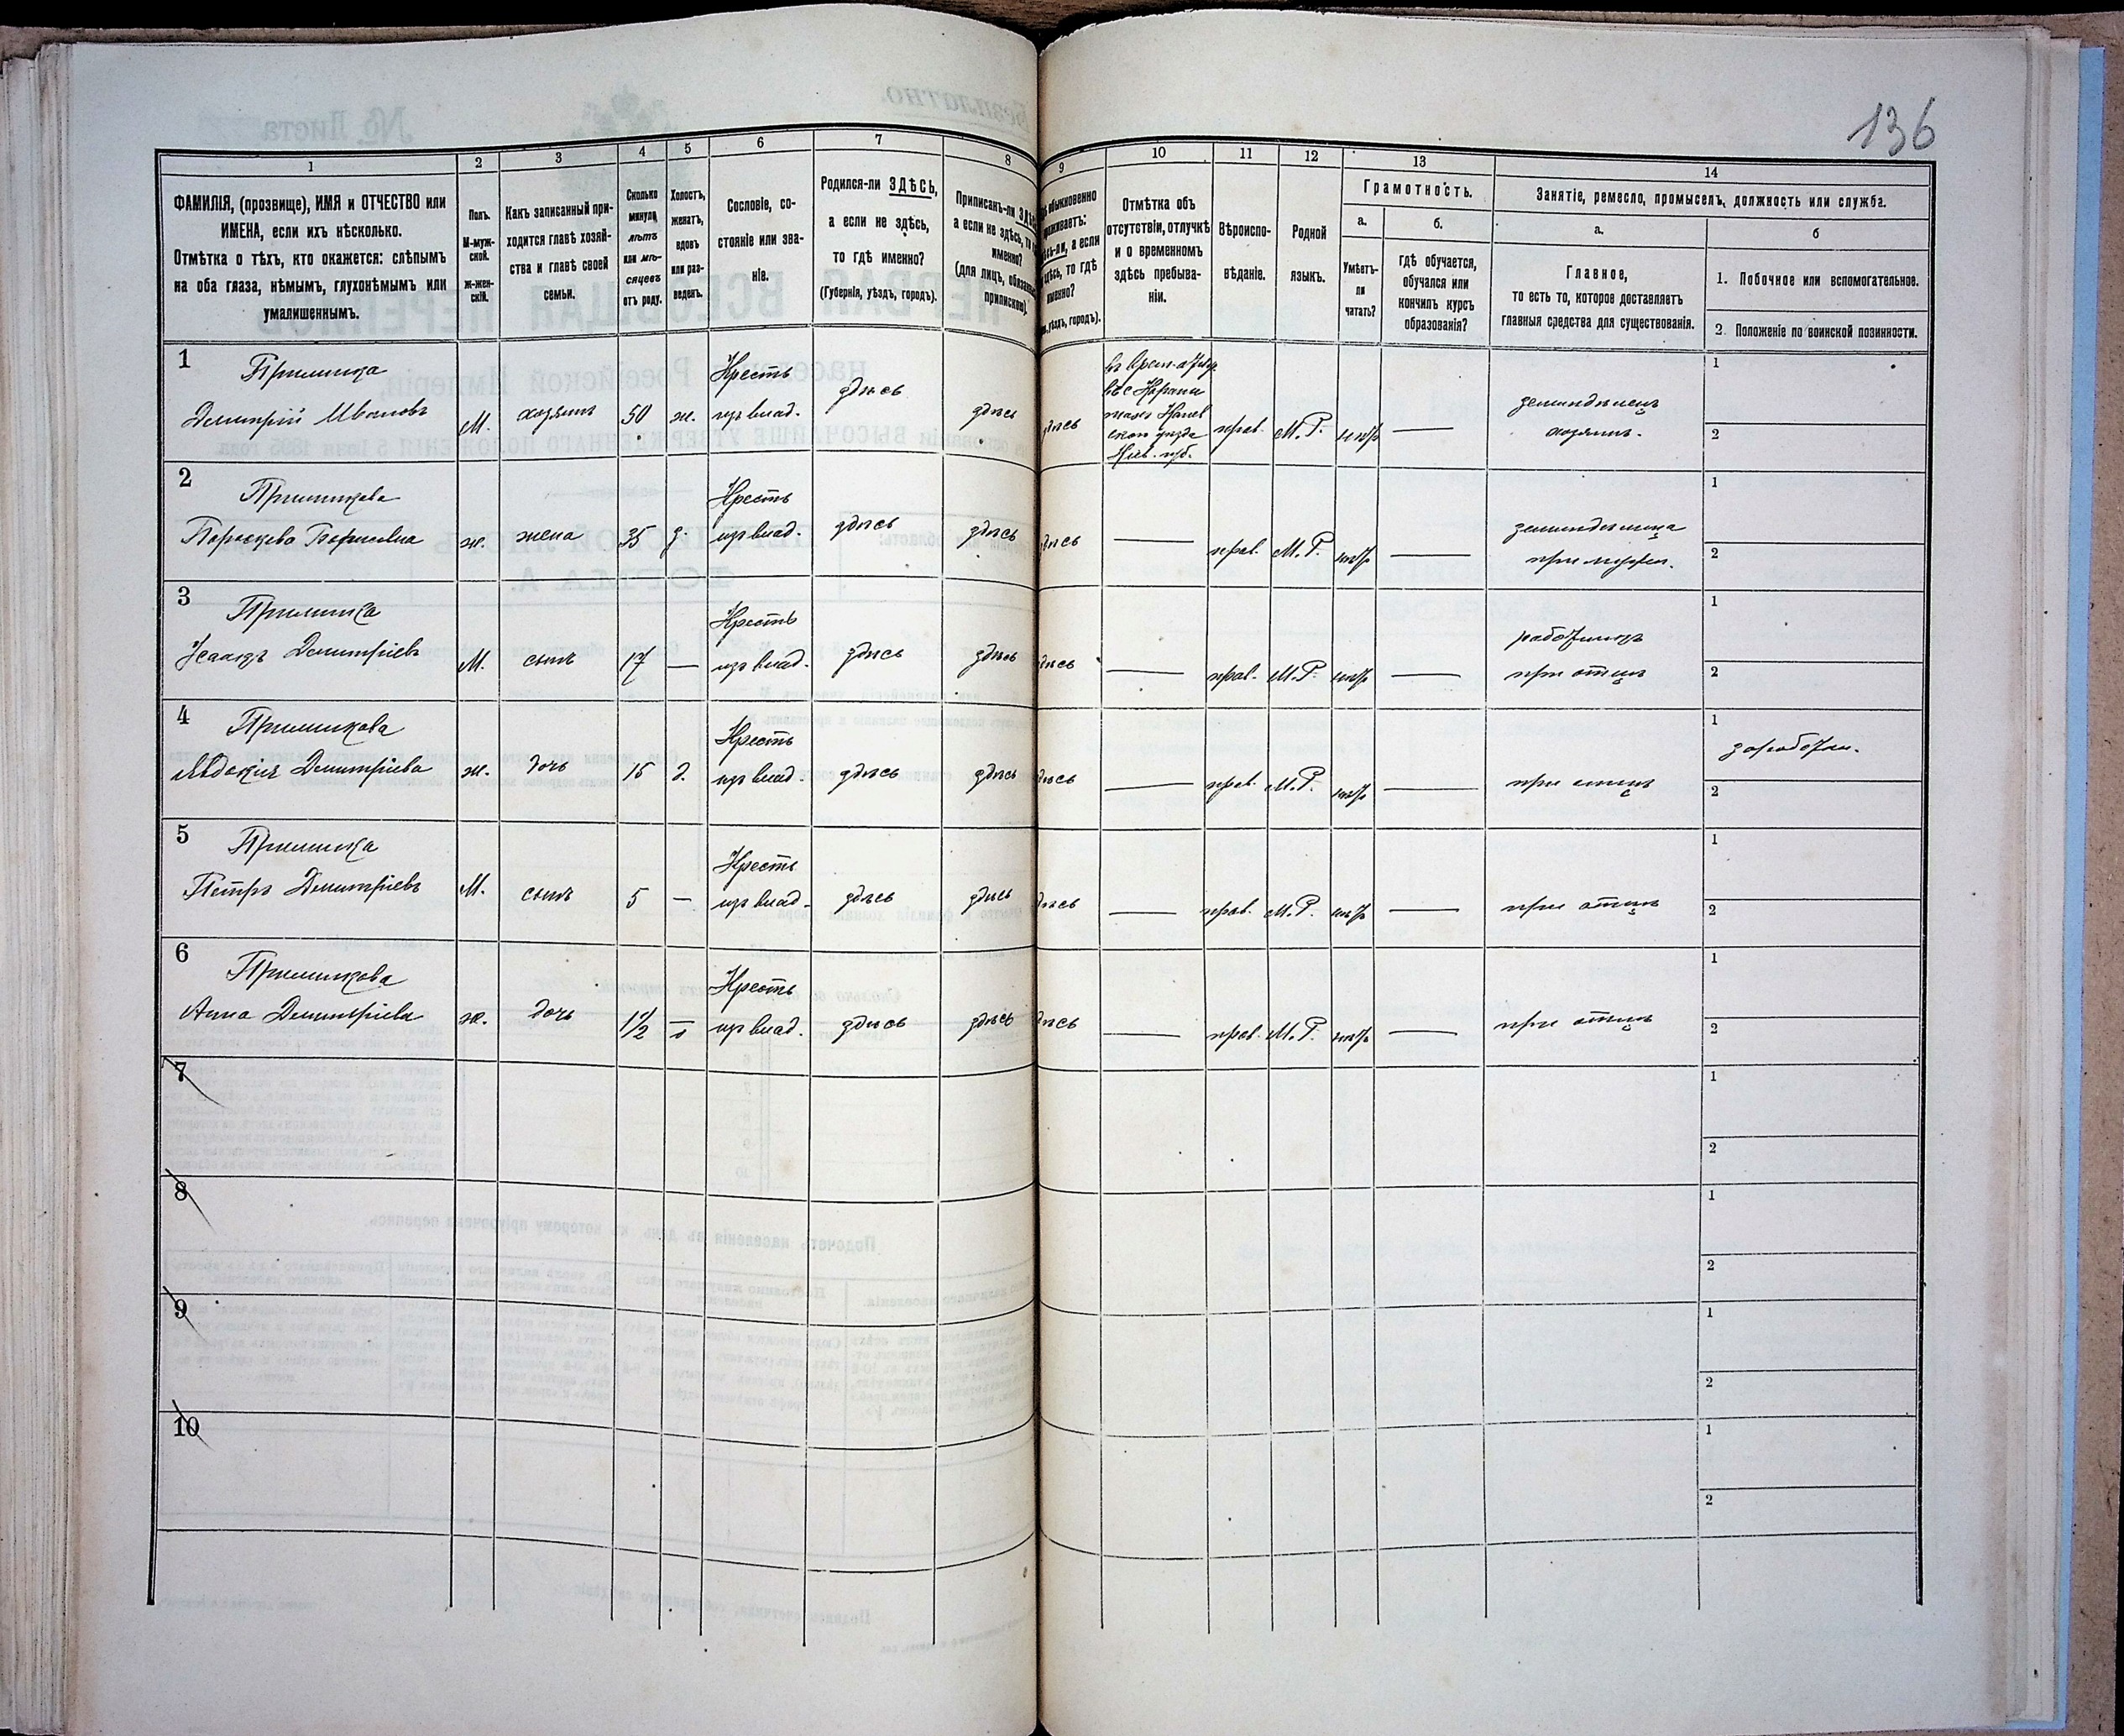 136
1
2
3
4
5
6
7
8
9
10
11
12
13
14
ФАМИЛІЯ, (прозвище), ИМЯ и ОТЧЕСТВО или
ИМЕНА, если ихъ нѣсколько.
Отмѣтка о тѣхъ, кто окажется: слѣпымъ
на оба глаза, нѣмымъ, глухонѣмымъ или
умалишеннымъ.
Полъ.
М-муж-
ской.
ж-жен-
скій.
Какъ записанный при-
ходится главѣ хозяй-
ства и главѣ своей
семьи.
Сколько
минуло
лѣтъ
или мѣ-
сяцевъ
отъ роду.
Холостъ,
женатъ,
вдовъ
или раз-
веденъ.
Сословіе, со-
стояніе или зва-
ніе.
Родился-ли ЗДѢСЬ,
а если не здѣсь,
то гдѣ именно?
(Губернія, уѣздъ, городъ).
Приписанъ-ли
а если не здѣсь,
именно?
(для лицъ,
обыкновенно
а если
то гдѣ
уѣздъ, городъ).
Отмѣтка объ
отсутствіи, отлучкѣ
и о временномъ
здѣсь пребыва-
ніи.
Вѣроиспо-
вѣданіе.
Родной
языкъ.
Грамотность.
а.
б.
Умѣетъ-
ли
читать?
гдѣ обучается,
обучался или
кончилъ курсъ
образованія?
Занятіе, ремесло, промыселъ, должность или служба.
а.
б
Главное,
то есть то, которое доставляетъ
главныя средства для существованія.
1. Побочное или вспомогательное.
2. Положеніе по воинской повинности.
1
Примика
Дмитрій Ивановъ
М.
хозяинъ
50
ж.
Кресть
изъ влад.
здѣсь
здѣсь
прав.
М. Р.
нѣтъ
земледѣлецъ
хозяинъ.
1
2
2
Примикова
Параскева Борисовна
ж.
жена
35
з.
Кресть
изъ влад.
здѣсь
здѣсь
прав.
М. Р.
нѣтъ
при мужѣ.
1
2
3
Примика
Дмитріевъ
М.
сынъ
17
Кресть
изъ влад.
здѣсь
здѣсь
прав.
М. Р.
нѣтъ
при отцѣ
1
2
4
Примикова
Евдокія Дмитріева
ж.
дочь
15
д.
Кресть
изъ влад.
здѣсь
здѣсь
прав.
М. Р.
нѣтъ
при отцѣ
1
2
5
Примика
Петръ Дмитріевъ
М.
сынъ
5
Кресть
изъ влад.
здѣсь
здѣсь
прав.
М. Р.
нѣтъ
при отцѣ
1
2
6
Примикова
Анна Дмитріева
ж.
дочь
1/2
Кресть
изъ влад.
здѣсь
здѣсь
прав.
М. Р.
нѣтъ
при отцѣ
1
2
7
1
2
8
1
2
9
1
2
10
1
2